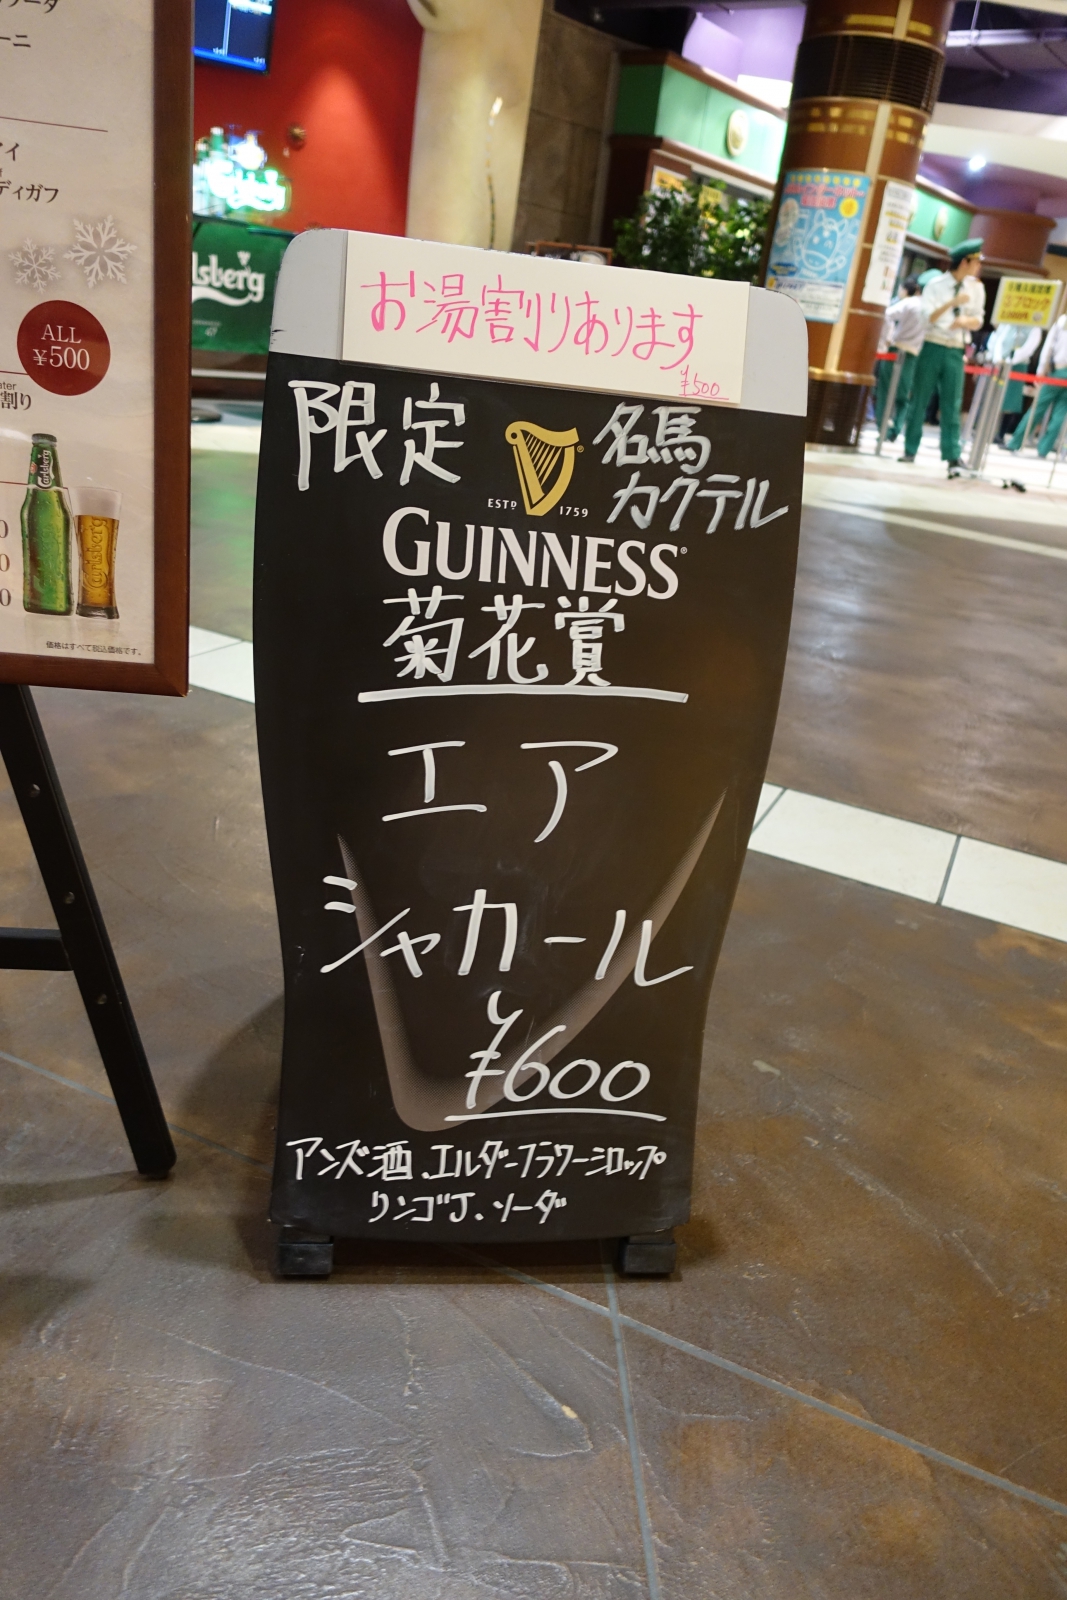 ーニ
ディガフ
ALL
¥500
割り
Carlsberg
価格はすべて税込価格です。
お湯割りあります
¥500
限定
名馬
カクテル
ESTD 1759
GUINNESS
菊花賞
エア
シャカール
¥600
アンズ酒、エルダーフラワーシロップ
リンゴJ、ソーダ